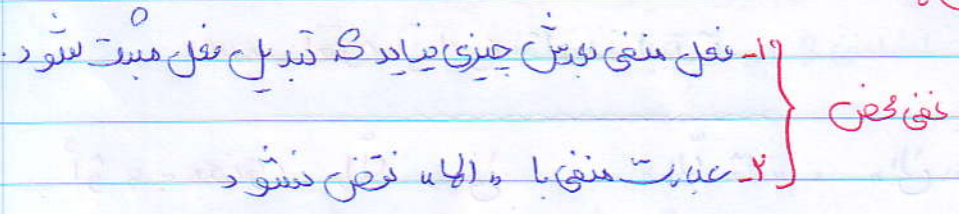 ۱- فعل منفی بعدش چیزی نیاید که تبدیل فعل مثبت شود.
نفی محض
۲- عبارت منفی با «الا» نقض نشود